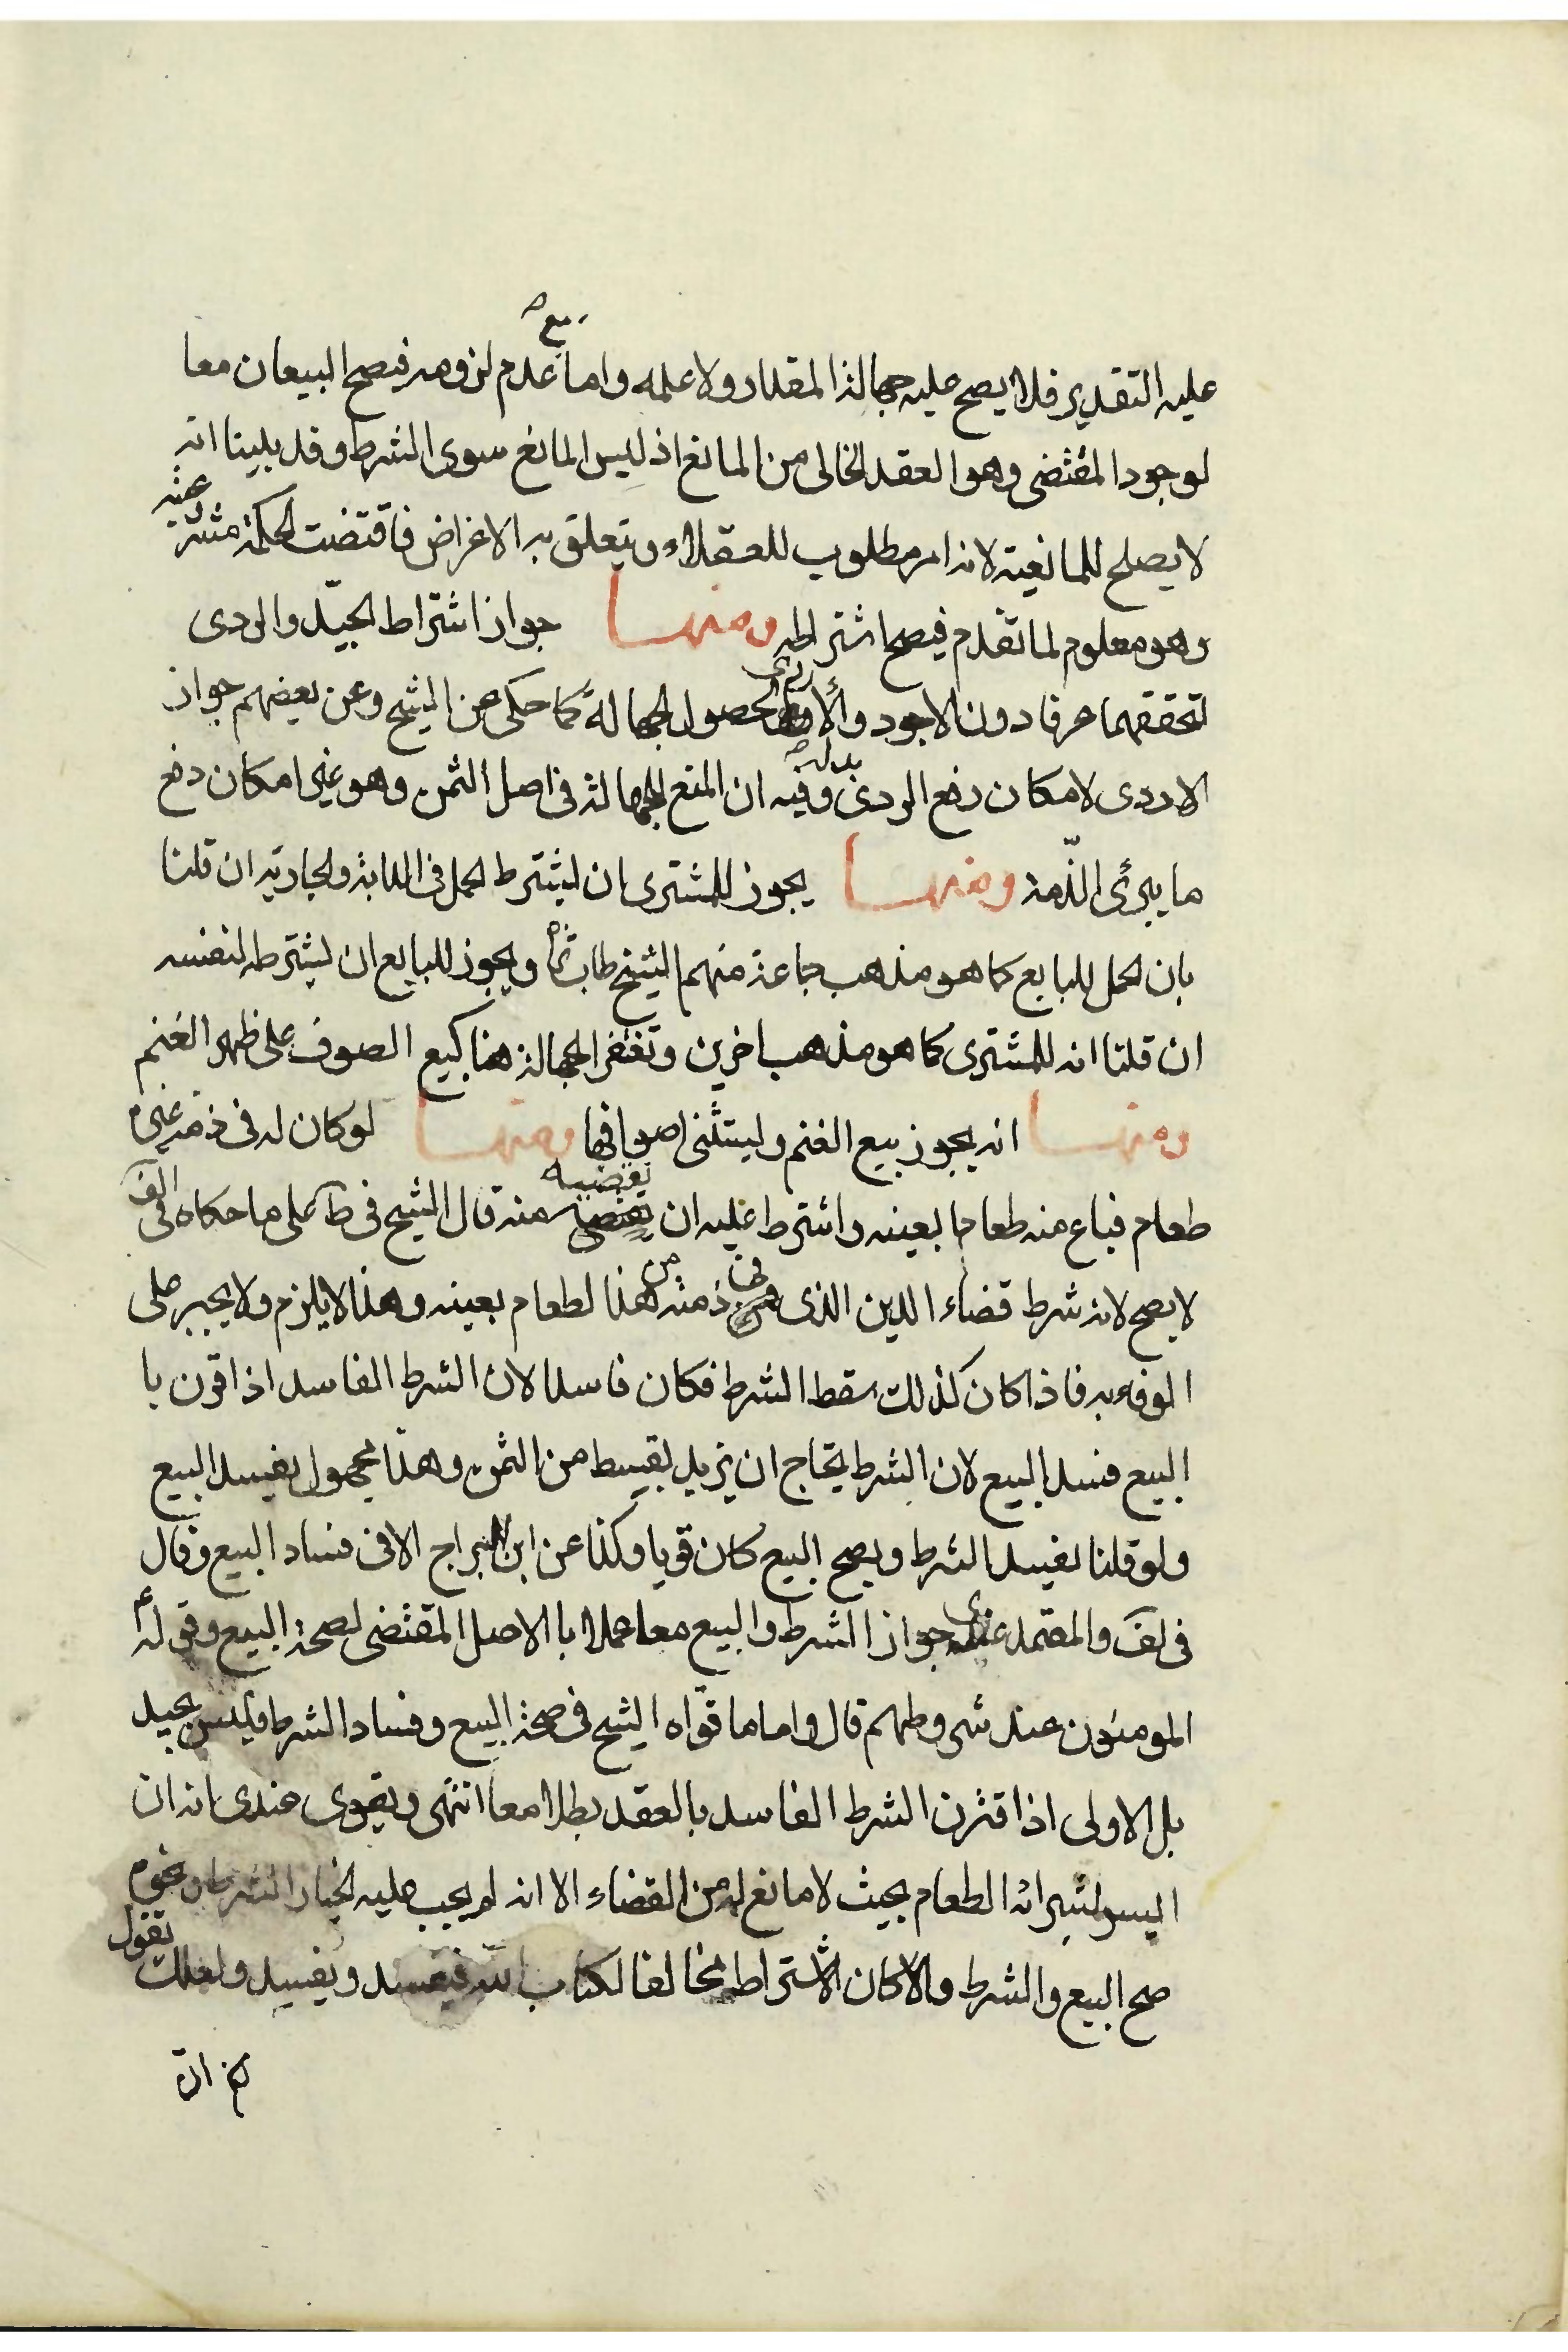 عليه التقدير فلا يصح عليه جهالة المقدار ولا علمه واما مع عدم لزومه فيصح البيعان معا
لوجود المقتضى وهو العقد الخالى من المانع اذ ليس المانع سوى الشرط وقد بينا انه
لا يصلح للمانعية لانه امر مطلوب للعقلاء ويتعلق به الاغراض فاقتضت الحكمة مشروعيته
وهو معلوم لما تقدم فيصح اشتراطه ومنها جواز اشتراط الجيّد والردى
لتحققهما عرفا دون الاجود والأردى لحصول الجهالة كما حكى عن الشيخ وعن بعضهم جواز
الاردى لامكان دفع الردى بدله وفيه ان المنع للجهالة فى اصل الثمن وهو غير امكان دفع
ما يبرئ الذّمة ومنها يجوز للمشترى ان يشترط الحمل فى الدابة والجارية ان قلنا
بان الحمل للبايع كما هو مذهب جماعة منهم الشيخ طاب ثراه ويجوز للبايع ان يشترطه لنفسه
ان قلنا انه للمشترى كما هو مذهب اخرين وتغتفر الجهالة هنا كبيع الصوف على ظهر الغنم
ومنها انه يجوز بيع الغنم ويستثنى اصوافها ومنها لو كان له فى ذمة غيره
طعام فباع منه طعاما بعينه واشترط عليه ان يقضيه منه قال الشيخ فى ط على ما حكاه فى الف
لا يصح لانه شرط قضاء الدين الذى فى ذمته من هذا لطعام بعينه وهذا لا يلزم ولا يجبر على
الوفاء به فاذا كان كذلك سقط الشرط فكان فاسدا لان الشرط الفاسد اذا قرن با
البيع فسد البيع لان الشرط يحتاج ان يزيد بقسط من الثمن وهذا مجهول يفسد البيع
ولو قلنا يفسد الشرط ويصح البيع كان قويا وكذا عن ابن البراج الا فى فساد البيع وقال
فى لف والمعتمد عندى جواز الشرط والبيع معا عملا با الاصل المقتضى لصحة البيع وقوله ع
المومنون عند شروطهم قال واما ما قوّاه الشيخ فى صحة البيع وفساد الشرط فليس بجيد
بل الاولى اذا قترن الشرط الفاسد بالعقد بطلا معا انتهى ويقوى عندى انه ان
اليسر لشراء الطعام بحيث لا مانع له من القضاء الا انه لم يجب عليه لخيار الشرط ونحوه
صح البيع والشرط والا كان الاشتراط مخالفا لكتاب الله فيفسد ويفسد ولعلك تقول